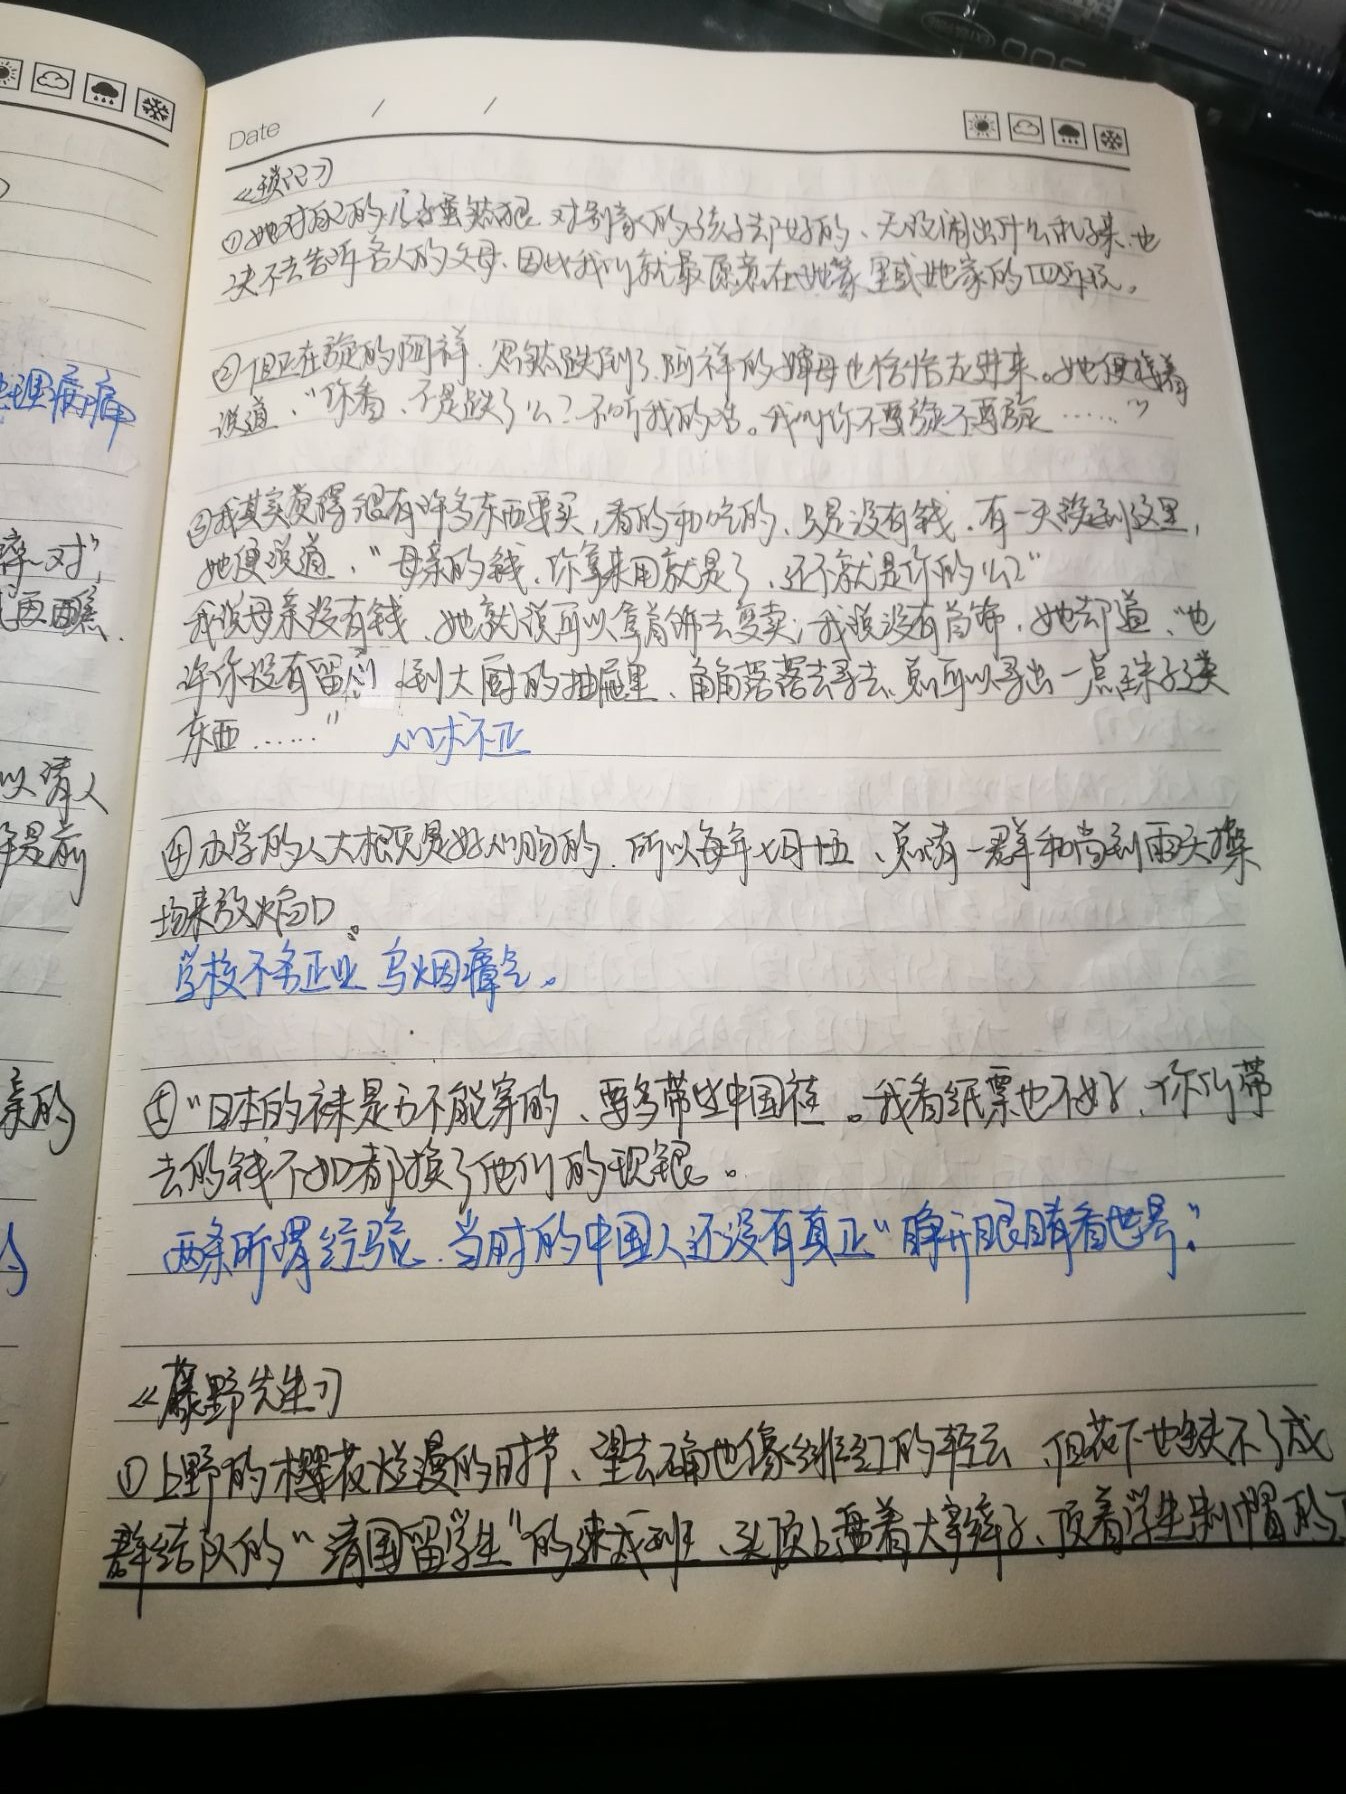 Date / /
《琐记》
①她对自己的儿子虽然狠、对别家的孩子却好的、无论闹出什么乱子来、也
决不去告诉各人的父母、因此我们就最愿意在她家里或她家的四近玩。
②但正在旋的阿祥、忽然跌倒了、阿祥的婶母也恰恰走进来。她便接着
说道、“你看、不是跌了么？不听我的话。我叫你不要旋不要旋……”
③我其实觉得很有许多东西要买，看的和吃的、只是没有钱、有一天谈到这里，
她便说道、“母亲的钱、你拿来用就是了、还不就是你的么？”
我说母亲没有钱、她就说可以拿首饰去变卖；我说没有首饰、她却道、“也
许你没有留心 到大厨的抽屉里、角角落落去寻去、总可以寻出一点珠子这类
东西……”
心术不正
④办学的人大概又是好心肠的、所以每年七月十五、总请一群和尚到雨天操
场来放焰口。
学校不务正业 乌烟瘴气。
⑤“日本的袜是万不能穿的、要多带些中国袜。我看纸票也不好、你们带
去的钱不如都换了他们的现银。
两条所谓经验、当时的中国人还没有真正“睁开眼睛看世界”
《藤野先生》
①上野的樱花烂漫的时节、望去确也像绯红的轻云、但花下也缺不了成
群结队的“清国留学生”的速成班、头顶上盘着大辫子、顶着学生制帽的
理病痛
对”
再醮
以请人
是前
亲的